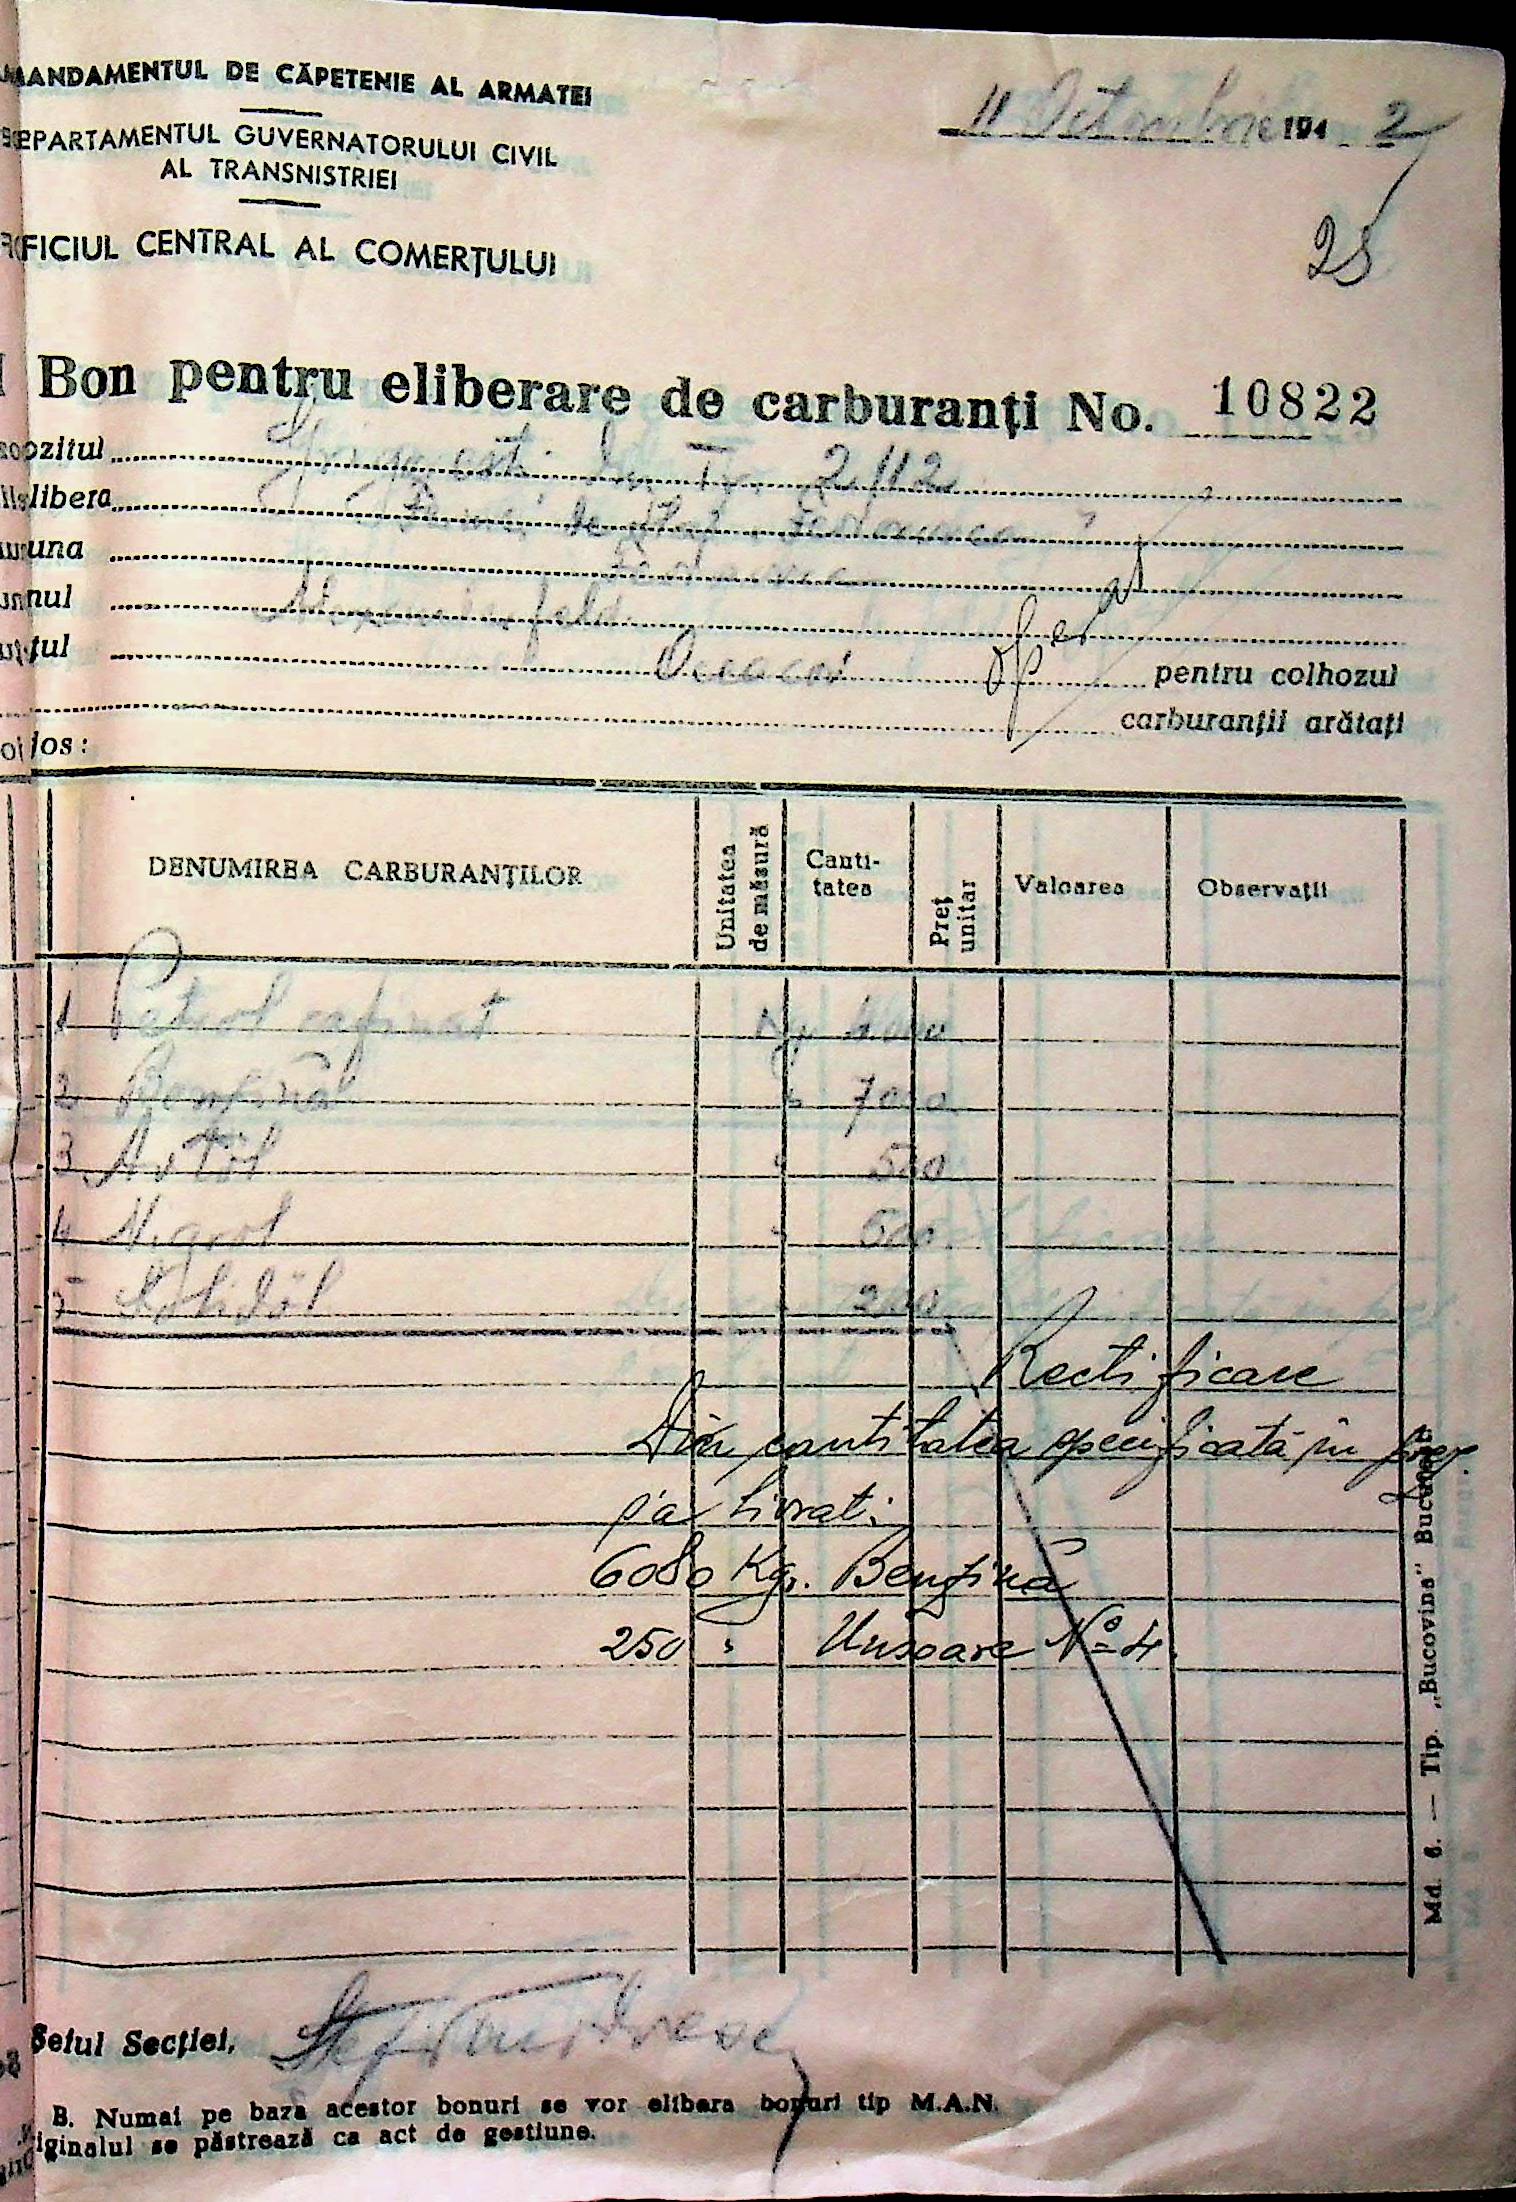 MANDAMENTUL DE CĂPETENIE AL ARMATEI
EPARTAMENTUL GUVERNATORULUI CIVIL
AL TRANSNISTRIEI
FICIUL CENTRAL AL COMERȚULUI
11 Octombrie 194 2
25
Bon pentru eliberare de carburanți No. 10822
ozitul 2112
libera Fermei de Stat
una
nul
tul Oceacov pentru colhozul
operat
carburanții arătați
jos:
DENUMIREA CARBURANȚILOR Unitatea de măsură Canti-tatea Preț unitar Valoarea Observații
1 Petrol rafinat Kgr 4000
2 Benzină " 7000
3 Avtol " 500
4 Nigrol " 600
5 " 200
Rectificare
Din cantitatea specificată în
s'a livrat:
6080 Kgr. Benzină
250 " Unsoare No 4
Md. 6. — Tip. „Bucovina" București
Șeful Secției,
B. Numai pe baza acestor bonuri se vor elibera bonuri tip M.A.N.
iginalul se păstrează ca act de gestiune.